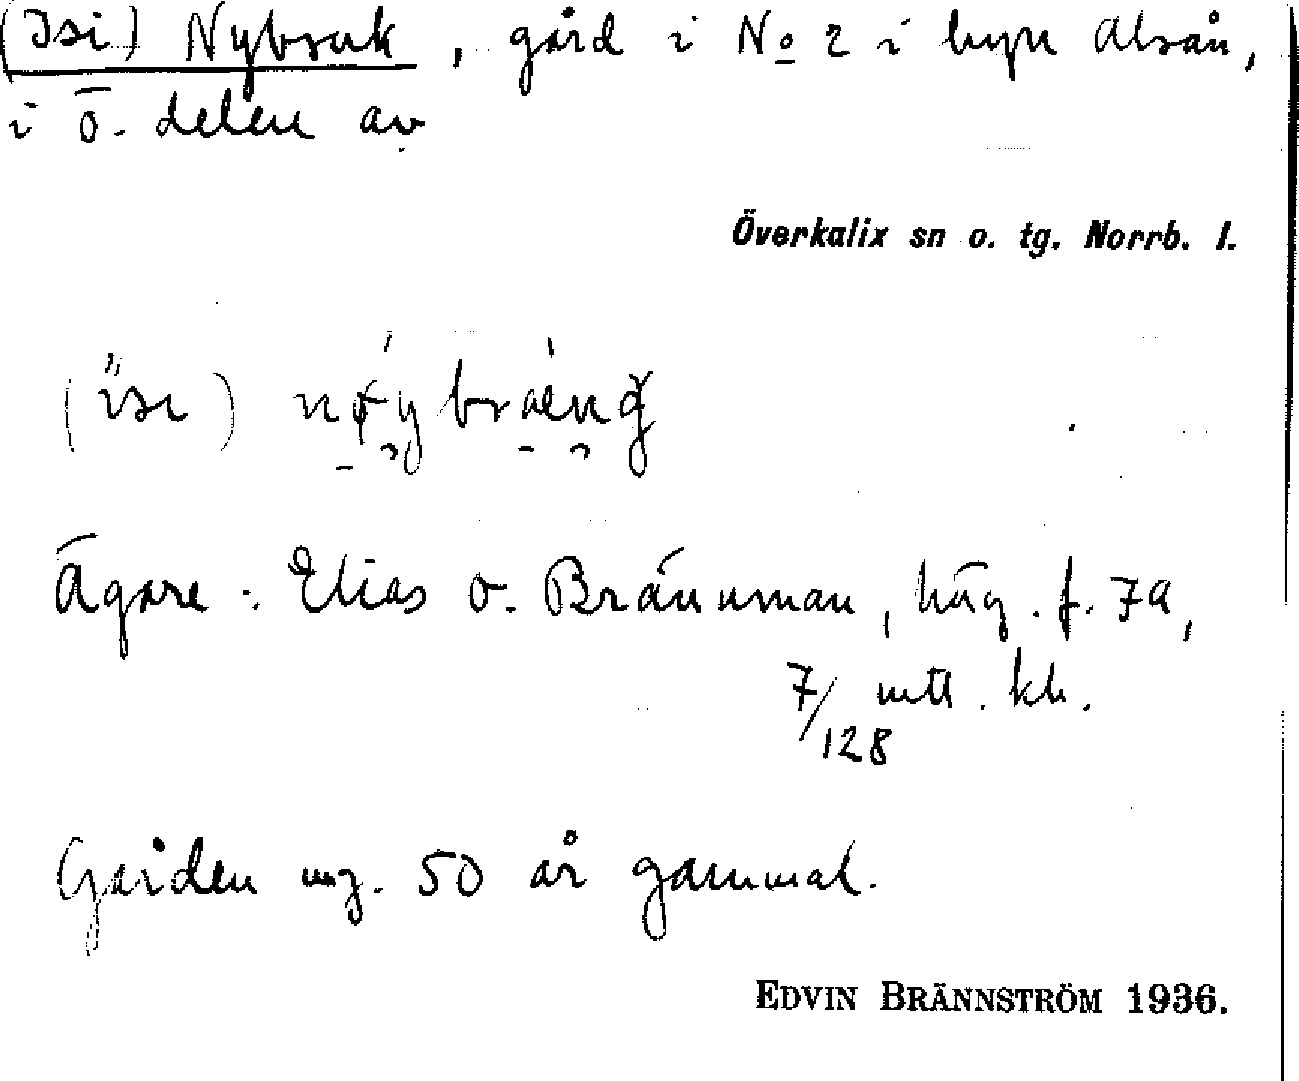 (Isi) Nybruk, gård i No 2 i byn Alsån,
i ö. delen av
Överkalix sn o. tg. Norrb. l.
(isi)
Ägare: Elias o. Brännman, häg. f. 7a,
7/128 mtl. kr.
Gården ung. 50 år gammal.
EDVIN BRÄNNSTRÖM 1936.